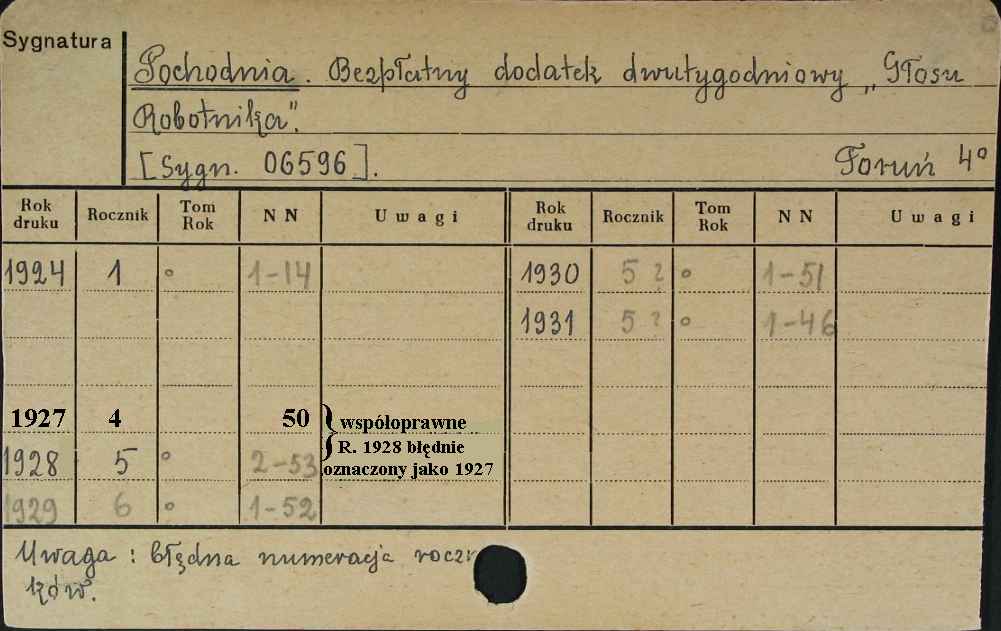 Sygnatura
Pochodnia. Bezpłatny dodatek dwutygodniowy „Głosu
Robotnika".
[Sygn. 06596]. Toruń 4°
Rok druku Rocznik Tom Rok N N Uwagi Rok druku Rocznik Tom Rok N N Uwagi
1924 1 ° 1-14 1930 5 ? ° 1-51
1931 5 ? ° 1-46
1927 4 50 współoprawne
R. 1928 błędnie
1928 5 ° 2-53 oznaczony jako 1927
1929 6 ° 1-52
Uwaga : błędna numeracja roczn
ków.